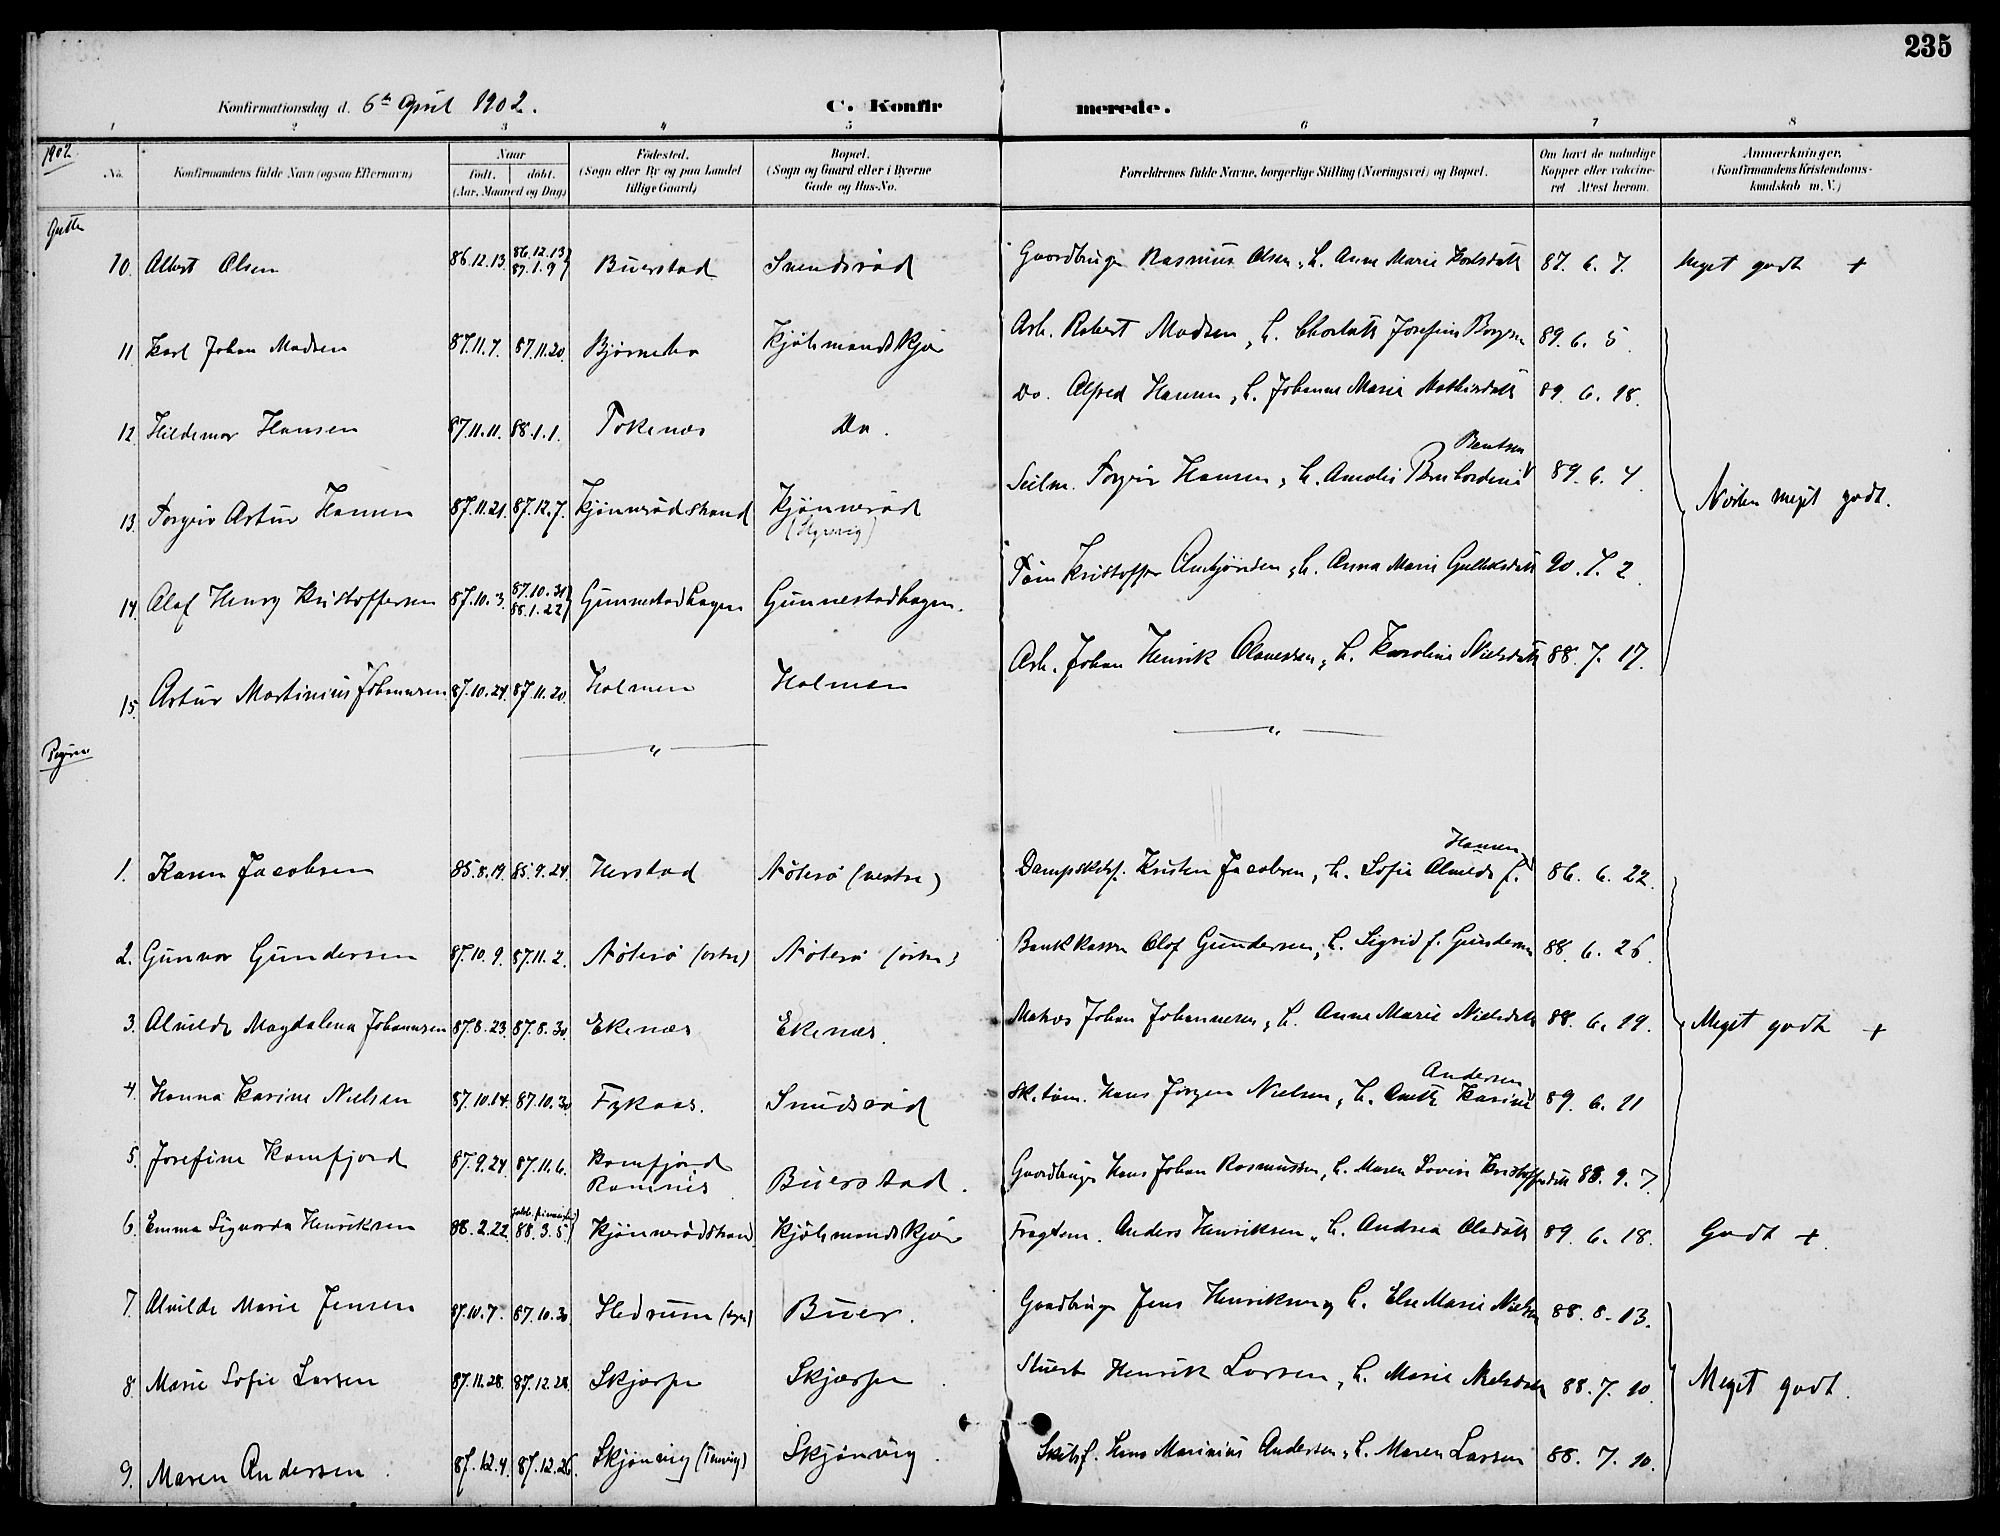 235
Konfirmationsdag d. 6te April 1902.
C. Konfirmerede.
1 2 3 4 5 6 7 8
1902.
No. Konfirmandens fulde Navn (ogsaa Efternavn) Naar födt. döbt. (Aar, Maaned og Dag) Födested. (Sogn eller By og paa Landet tillige Gaard) Bopæl. (Sogn og Gaard eller i Byerne Gade og Hus-No. Forældrenes fulde Navne, borgerlige Stilling (Næringsvei) og Bopæl. Om havt de naturlige Kopper eller vaccineret Attest herom. Anmærkninger, (Konfirmandens Kristendomskundskab m. V.)
Gutter
10. Albert Olsen 86.12.13. 86.12.13 87.1.9 Buerstad Svendsröd Gaardbruger Rasmus Olsen, h. Anne Marie 87.6.7. Meget godt +
11. Karl Johan Madsen 87.11.7. 87.11.20. Bjørnebo Kjölsmandskjær Arb. Robert Madsen, h. Josefine 89.6.5.
12. Hildemar Hansen 87.11.11. 88.1.1. Tokenæs Do. Do. Alfred Hansen, h. Johanne Marie 89.6.18.
13. Torgeir Artur Hansen 87.11.21. 87.12.7. Kjønnerödstrand Kjønneröd Seilm. Torgeir Hansen, h. Amalie Bernhardine Bentsen 89.6.4. Næsten meget godt.
14. Olaf Henry Kristoffersen 87.10.3. 87.10.30 88.1.22 Gunnestadhagen Gunnestadhagen. Töm. Kristoffer h. Anna Marie 90.7.2.
15. Artur Martinius Johannesen 87.10.24. 87.11.20. Holmen Holmen Arb. Johan Henrik h. Karoline Nielsdatter 88.7.17.
— „ — — „ —
Piger
1. Karen Jacobsen 85.8.19. 85.9.24. Herstad Nöterö (vestre) Dampskibsf. Kristen Jacobsen, h. Sofie Alvilde f. Hansen 86.6.22.
2. Gunvor Gundersen 87.10.9. 87.11.2. Nöterö (östre) Nöterö (östre) Bankkasser Olof Gundersen, h. Sigrid f. Gundersen 88.6.26.
3. Alvilde Magdalena Johannesen 87.8.23. 87.8.30. Ekenæs Ekenæs. Matros Johan Johannesen, h. Anne Marie Nielsdatter 88.6.19. Meget godt +
4. Hanna Karine Nielsen 87.10.14. 87.10.30 Fykaas. Smidsröd Sk.töm. Hans Jörgen Nielsen, h. Anette Karine Andersen 89.6.11
5. Josefine Ramfjord 87.9.24. 87.11.6. Ramfjord Ramnes Buerstad. Gaardbruger Hans Johan Rasmussen, h. Maren Lovise Kristoffersdatter 88.9.7.
6. Emma Sigvarda Henriksen 88.2.22. 88.3.5 Kjønnerödstrand. Kjölsmandskjær Fragtem. Anders Henriksen, h. Andrea Olsdatter 89.6.18. Godt +.
7. Alvilde Marie Jensen 87.10.7. 87.10.30. Hedrum Buer. Gaardbruger Jens Henriksen, h. Else Marie Nielsen 88.8.13.
8. Marie Sofie Larsen 87.11.28. 87.12.28. Skjærpe Skjærpe Stuert Henrik Larsen, h. Marie Nielsdatter 88.7.10. Meget godt.
9. Maren Andersen. 87.12.4. 87.12.26. Skjønvig Skjønvig. Skibsf. Hans Marinius Andersen, h. Maren Larsen 88.7.10.